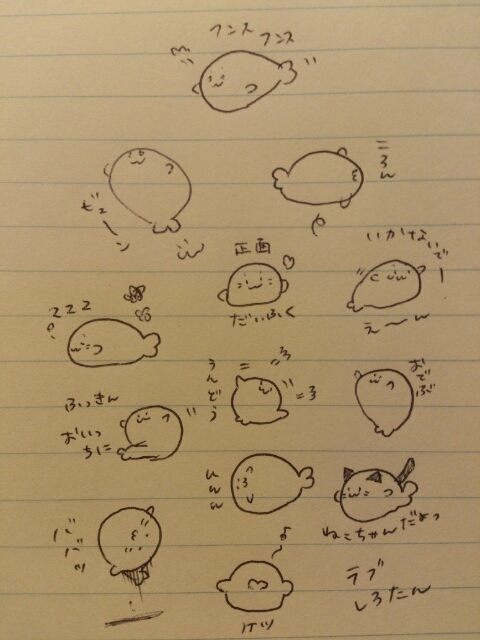 フンス フンス
ころん
ビューン
正面
だいふく
いかないでー
え〜ん
zzz
うんどう
おでぶ
ふっきん
おいっ
ちに
ひんん
ねこちゃんだよっ
バババッ
♪
ケツ
ラブ
しろたん